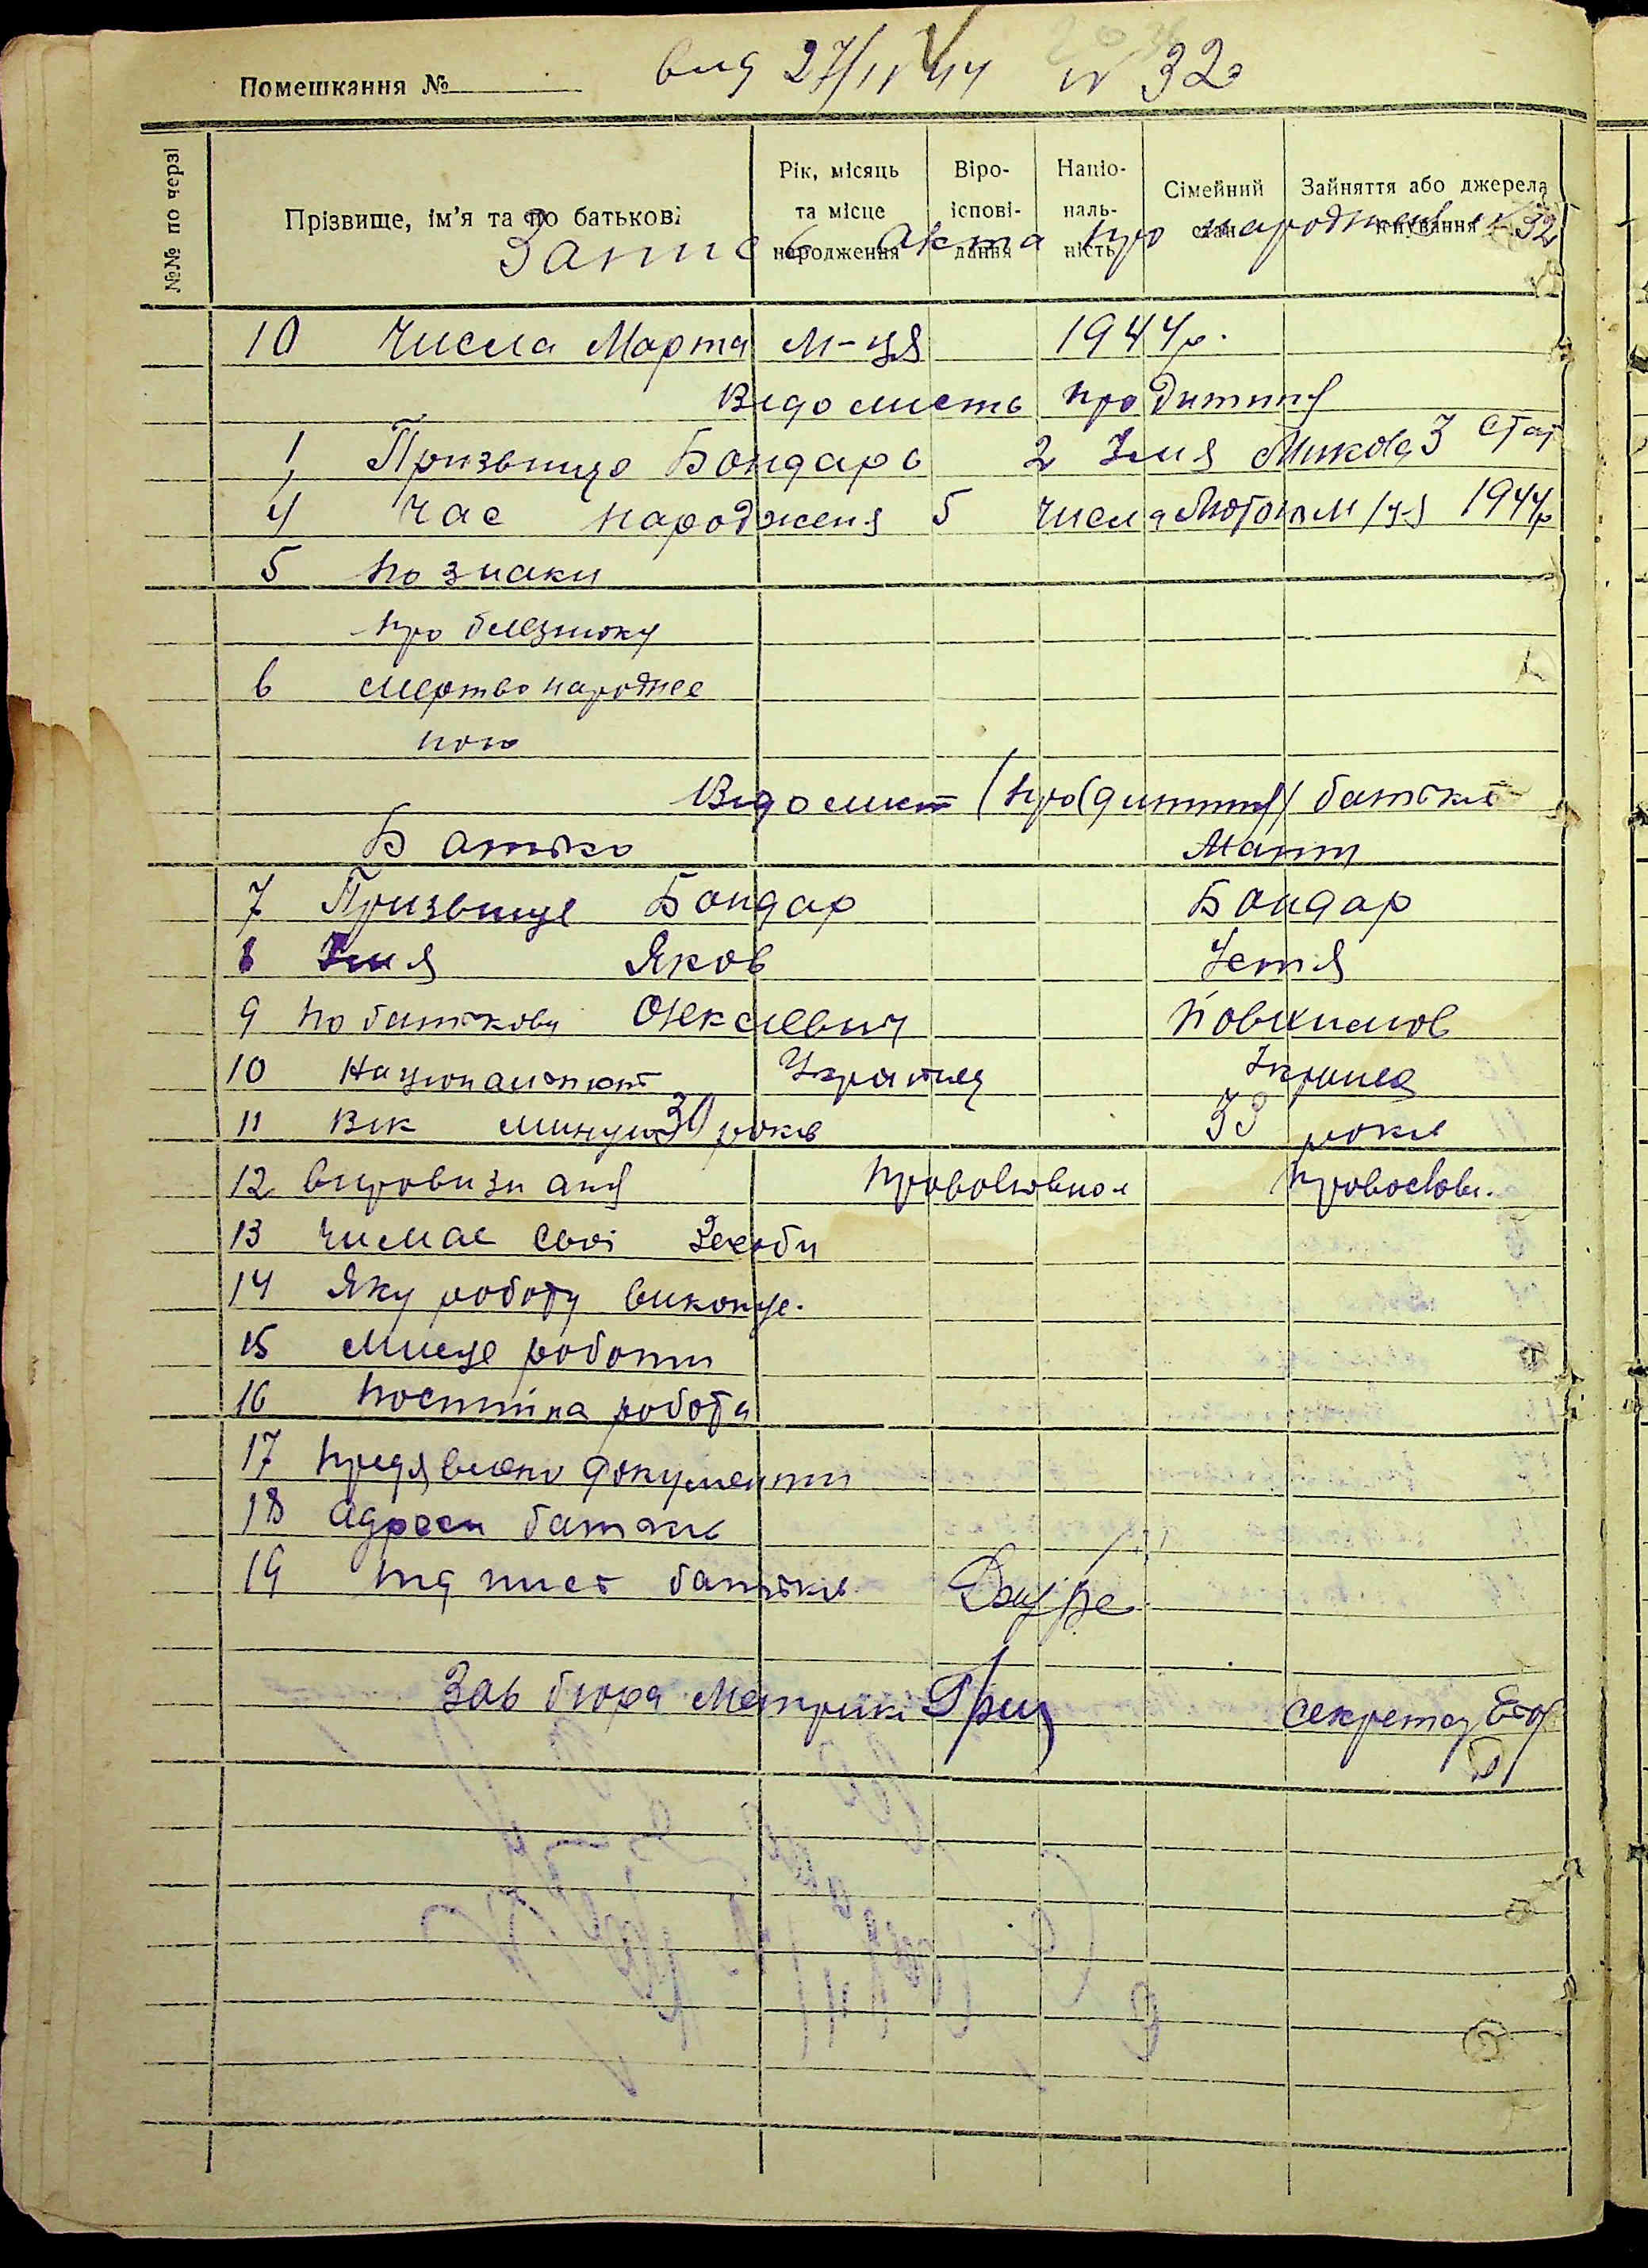 Помешкання № вид 27/IV 44 N 32
№№ по черзі
Прізвище, ім'я та по батькові
Рік, місяць та місце народження
Віроіспові-дання
Націо-наль-ність
Сімейний стан
Зайняття або джерела існування
Запис акта про народженя N 32
10 числа Марта м-ця 1944 р.
Відомисть про дитину
1, Призвище Бондарь 2 Імя Микола 3 Стат
4 Час народженя 5 числа Лютого м/ця 1944 р
5 познаки
про близнюку
6 смертвонароднее
ною
Відомист (про (дитину) батьків
Батько Мати
7 Призвище Бондар Бондар
8 Імя Яков Устя
9 по батькови Олексіевич Повхимов
10 Националност Украінец Украінка
11 Вік минуло 30 років 33 роки
12 вировизнаня православноі православн.
13 чи має своі засоби
14 Яку роботу виконує.
15 Мисце роботи
16 постійна робота
17 предявлено документи
18 адреси батьків
19 підпист батьків
Зав бюра Метрики Гриц секретар